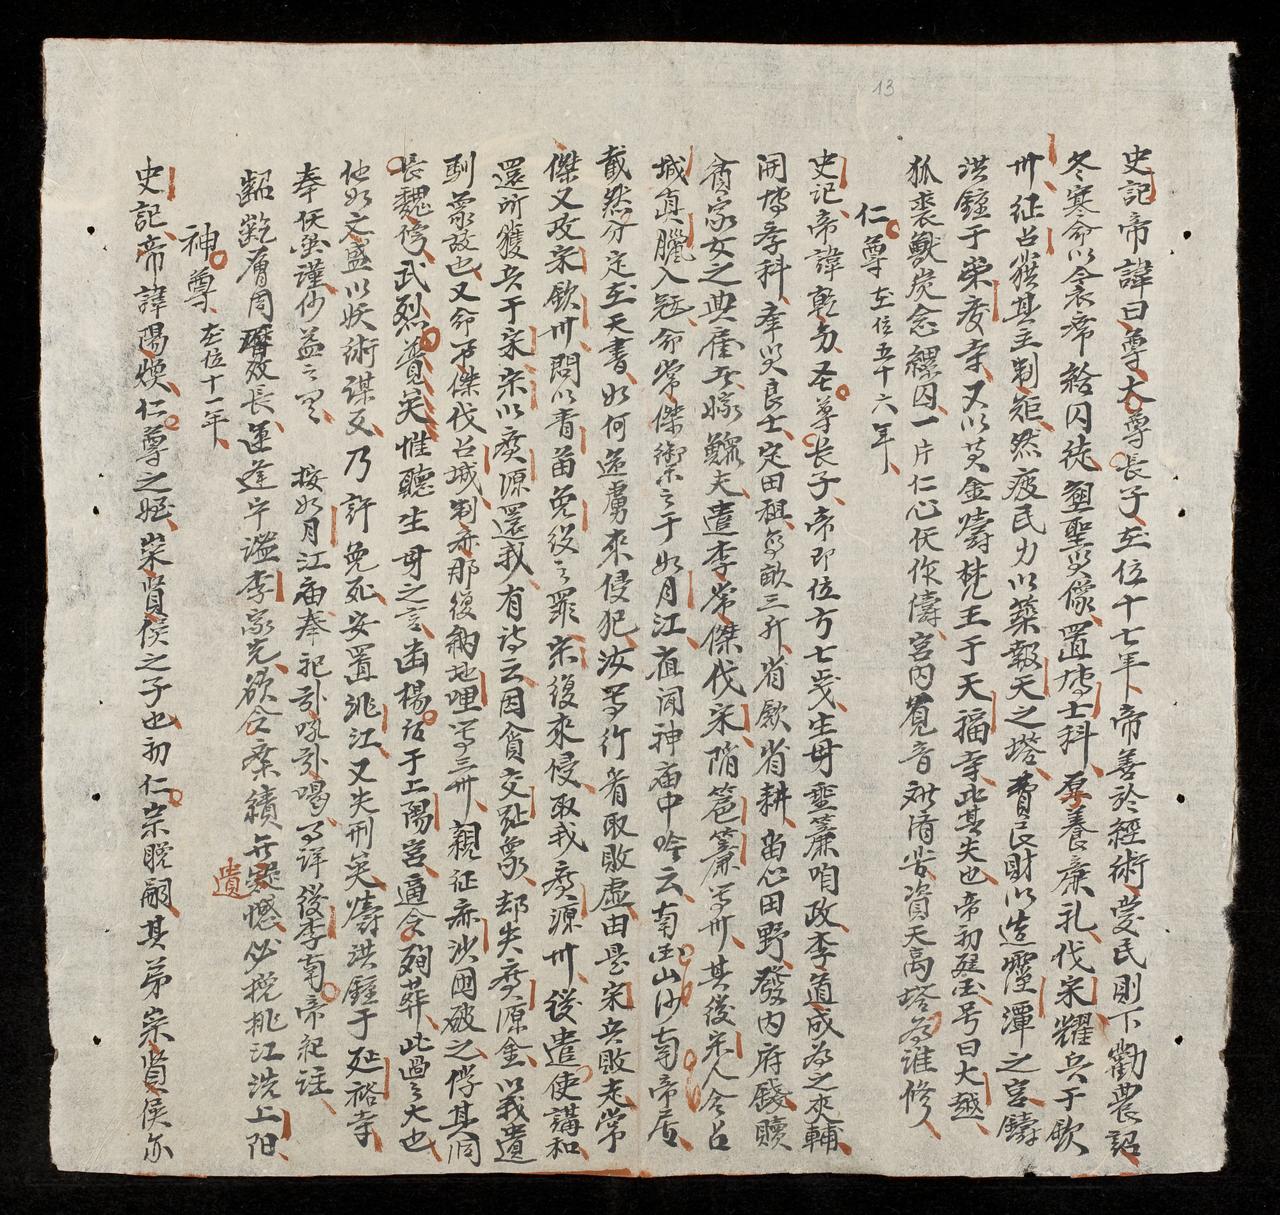 13
史記帝諱日尊太尊長子在位十七年帝善於經術愛民則下勸農詔
冬寒命以令衣席給囚徒塑聖賢像置博士科厚養廉礼伐宋耀兵于欽
卅征占獲其主制矩然疲民力以築報天之塔費民財以造靈潭之宮鑄
洪鐘于崇慶寺又以黃金鑄梵王于天福寺此其失也帝初建国号曰大越
狐裘獸炭念縲囚一片仁心仸作儔宮内覓音
仁尊在位五十六年
史记帝諱乾为圣尊長子帝即位方七歲生母垂簾咱政李道成為之夾輔
開場李科牽以良士定田租每畝三升省歛省耕畄心田野發内府錢贖
貧家女之典雇者嫁鰥夫遣李常傑伐宋陥邕簾等卅其後宋人令占
城真臘入冦命常傑禦之于如月江夜闻神庙中吟云南国山河南帝居
截然分定在天書如何逆虜來侵犯汝等行看取敗虛由是宋兵敗走常
傑又攻宋欽卅問以青苗免役之罪宋復來侵取我廣源卅後遣使講和
還所獲兵于宋宋以廣源還我有诗云因貪交趾象却失廣源金以我遺
馴象故也又命常傑伐占城制亦那復納地哩等三卅親征亦沙囤破之俘其洞
長魏侉武烈覺矣惟聽生母之言幽楊后于上陽宮逼令殉葬此過之大也
他如文盛以妖術謀反乃許免死安置洮江又失刑矣鑄洪鐘于延裕寺
奉仸虽謹何益之哭按如月江庙奉祀引吼引喝等详後李南帝紀註
齠齔膺同曆数長運逢中謐李家光欲令棄績無疑憾必挽桃江洗上阳
遺
神尊在位十一年
史記帝諱陽煥仁尊之姪崇賢侯之子也初仁宗晚嗣其弟崇賢侯亦